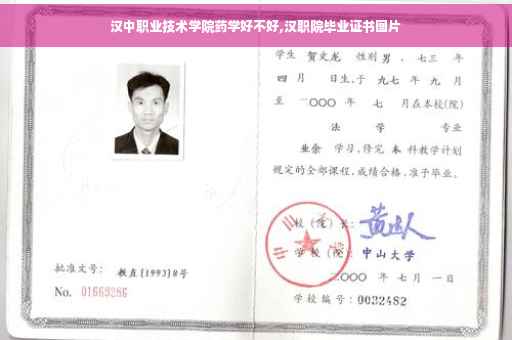 汉中职业技术学院药学好不好,汉职院毕业证书图片
学生 贺文龙 性别 男 , 七三 年
四 月 日生,于 九七 年 九 月
至 二〇〇〇 年 七 月在本校(院)
法 学 专业
业余 学习,修完 本 科教学计划
规定的全部课程,成绩合格,准予毕业。
校 (院) 长:
学 校 (院): 中山大学
二〇〇〇 年 七 月 一 日
学校编号: 0032482
批准文号: 教直[1993]8号
No. 01669286